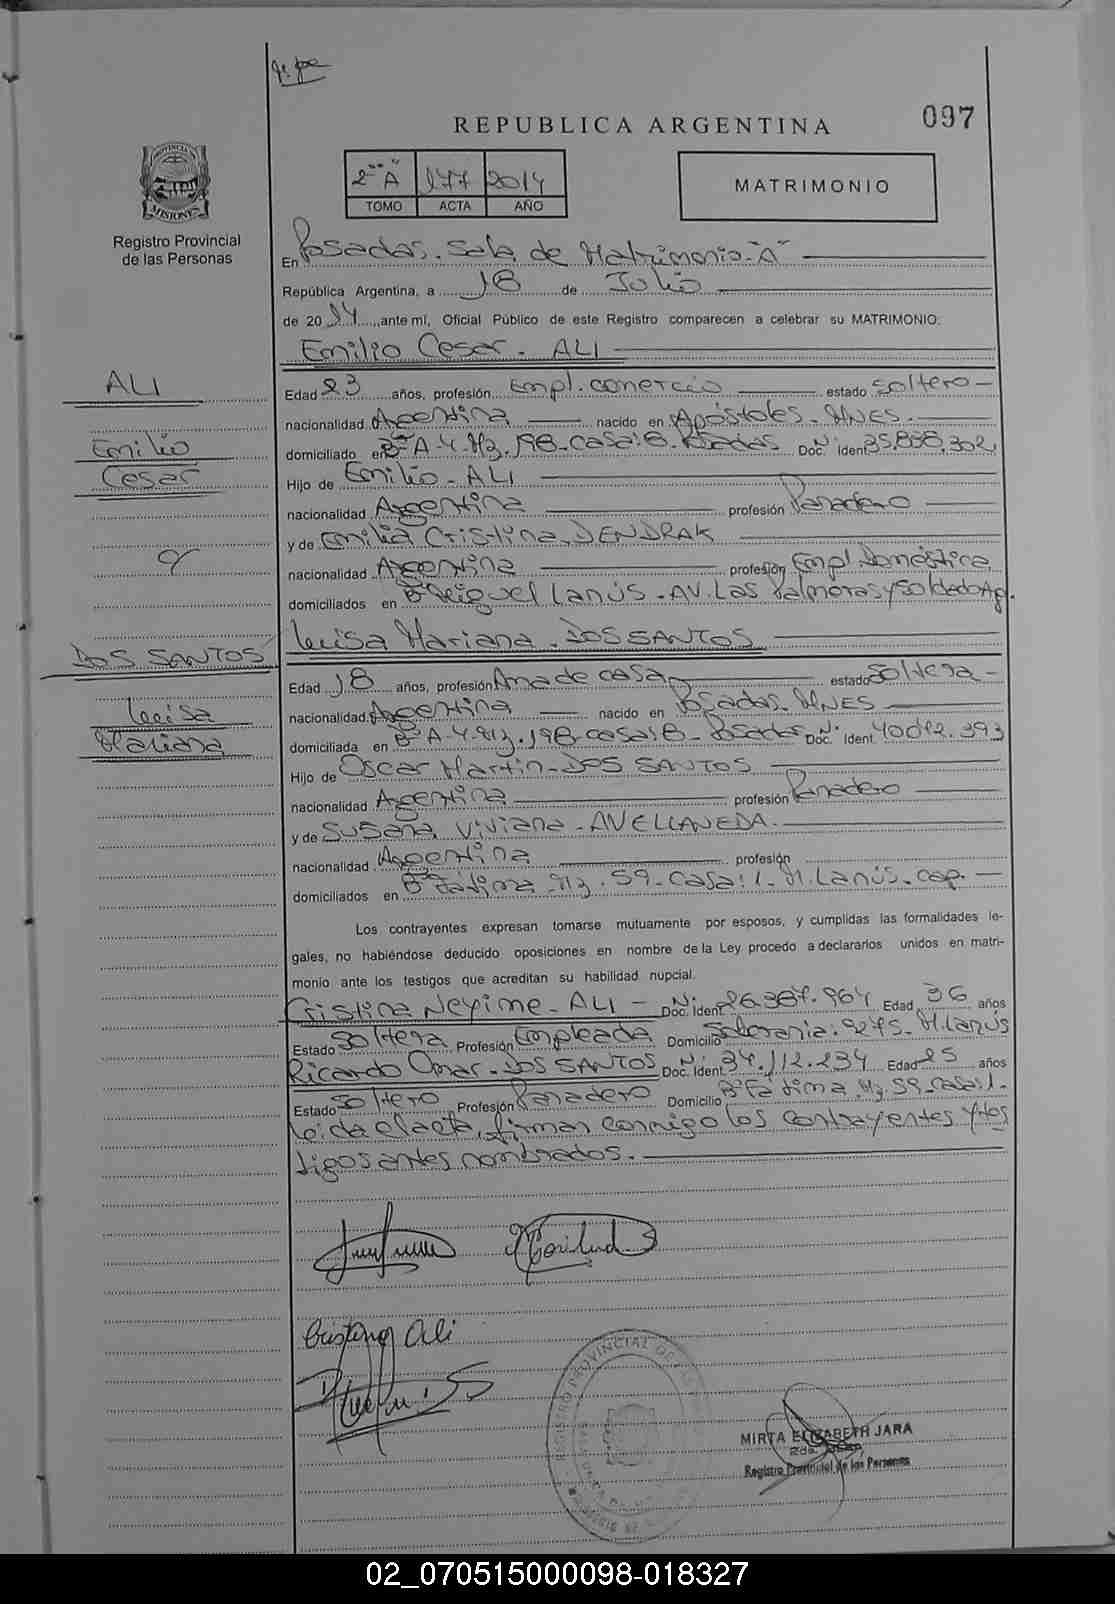 097
REPUBLICA ARGENTINA
PROVINCIA DE
MISIONES
Registro Provincial
de las Personas
2 "A" 177 2014
TOMO ACTA AÑO
MATRIMONIO
En Posadas. Sala de Matrimonio "A"
República Argentina, a 18 de Julio
de 2014, ante mí, Oficial Público de este Registro comparecen a celebrar su MATRIMONIO:
Emilio Cesar. ALI
ALI
Emilio
Cesar
y
DOS SANTOS
Luisa
Mariana
Edad 23 años, profesión Empl. comercio estado soltero
nacionalidad Argentina nacido en Apóstoles. MNES.
domiciliado en Bº A-4-Mz. 198-casa: 8- Posadas Doc. Nº Ident 35.838.302
Hijo de Emilio - ALI
nacionalidad Argentina profesión Panadero
y de Emilia Cristina. DENDRAK
nacionalidad Argentina profesión Empl. Doméstica
domiciliados en Bº Miguel Lanús. AV. Las Palmeras y Soldado Ag.
Luisa Mariana. DOS SANTOS
Edad 18 años, profesión Ama de casa estado soltera
nacionalidad Argentina nacido en Posadas. MNES
domiciliada en Bº A-4-Mz. 198-casa: 8- Posadas Doc. Nº Ident.
Hijo de Oscar Martin-DOS SANTOS
nacionalidad Argentina profesión Panadero
y de Susana Viviana - AVELLANEDA.
nacionalidad Argentina profesión
domiciliados en Bº Fátima Mz. 59-Casa: 1. M. Lanús. cap.
Los contrayentes expresan tomarse mutuamente por esposos, y cumplidas las formalidades le-
gales, no habiéndose deducido oposiciones en nombre de la Ley procedo a declararlos unidos en matri-
monio ante los testigos que acreditan su habilidad nupcial.
Cristina Neyime. ALI - Doc. Nº Ident 26.387.964 Edad 36 años
Estado soltera Profesión Empleada Domicilio M. Lanús
Ricardo Omar. DOS SANTOS Doc. Nº Ident. 34.112.234 Edad 25 años
Estado soltero Profesión Panadero Domicilio Bº Fátima Mz 59-casa: 1.
Leída el acta, firman conmigo los contrayentes y tes
tigos antes nombrados.
Cristina Ali
REGISTRO PROVINCIAL DE LAS
MIRTA ELIZABETH JARA
Registro Provincial de las Personas
02_070515000098-018327